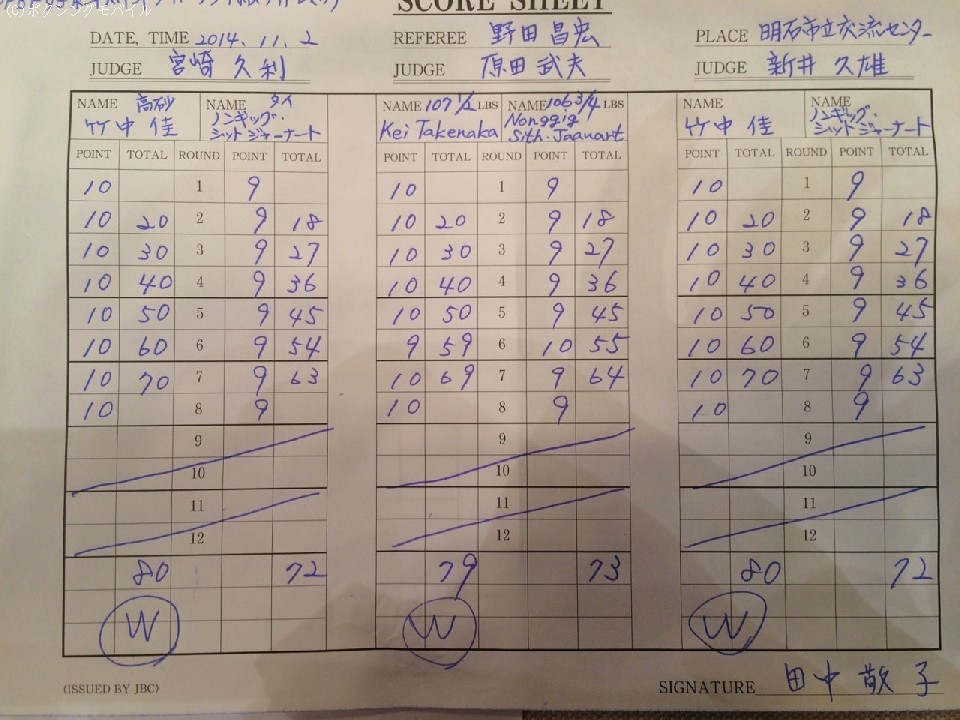 (C)ボクシングモバイル
SCORE SHEET
DATE, TIME 2014. 11. 2 REFEREE 野田昌宏 PLACE 明石市立交流センター
JUDGE 宮崎久利 JUDGE 原田武夫 JUDGE 新井久雄
NAME 高砂 NAME タイ NAME 107 1/2 LBS NAME 106 3/4 LBS NAME NAME
竹中佳 ノンギッグ・シットジャーナート Kei Takenaka Nonggig Sith-Jaanart 竹中佳 ノンギッグ・シットジャーナート
POINT TOTAL ROUND POINT TOTAL POINT TOTAL ROUND POINT TOTAL POINT TOTAL ROUND POINT TOTAL
10 1 9 10 1 9 10 1 9
10 20 2 9 18 10 20 2 9 18 10 20 2 9 18
10 30 3 9 27 10 30 3 9 27 10 30 3 9 27
10 40 4 9 36 10 40 4 9 36 10 40 4 9 36
10 50 5 9 45 10 50 5 9 45 10 50 5 9 45
10 60 6 9 54 9 59 6 10 55 10 60 6 9 54
10 70 7 9 63 10 69 7 9 64 10 70 7 9 63
10 8 9 10 8 9 10 8 9
9 9 9
10 10 10
11 11 11
12 12 12
80 72 79 73 80 72
W W W
(ISSUED BY JBC) SIGNATURE 田中敬子